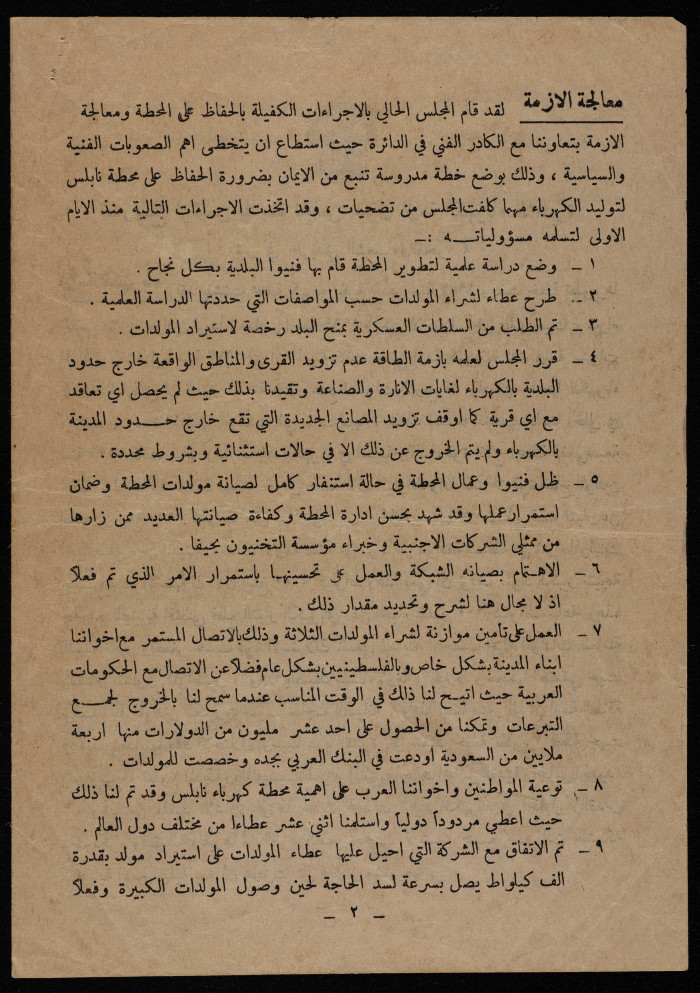 معالجة الازمة لقد قام المجلس الحالي بالاجراءات الكفيلة بالحفاظ على المحطة ومعالجة
الازمة بتعاوننا مع الكادر الفني في الدائرة حيث استطاع ان يتخطى اهم الصعوبات الفنية
والسياسية ، وذلك بوضع خطة مدروسة تنبع من الايمان بضرورة الحفاظ على محطة نابلس
لتوليد الكهرباء مهما كلفت المجلس من تضحيات ، وقد اتخذت الاجراءات التالية منذ الايام
الاولى لتسلمه مسؤولياته :ـ
١ ـ وضع دراسة علمية لتطوير المحطة قام بها فنيوا البلدية بكل نجاح .
٢ ـ طرح عطاء لشراء المولدات حسب المواصفات التي حددتها الدراسة العلمية .
٣ ـ تم الطلب من السلطات العسكرية بمنح البلد رخصة لاستيراد المولدات .
٤ ـ قرر المجلس لعلمه بازمة الطاقة عدم تزويد القرى والمناطق الواقعة خارج حدود
البلدية بالكهرباء لغايات الانارة والصناعة وتقيدنا بذلك حيث لم يحصل اي تعاقد
مع اي قرية كما اوقف تزويد المصانع الجديدة التي تقع خارج حدود المدينة
بالكهرباء ولم يتم الخروج عن ذلك الا في حالات استثنائية وبشروط محددة .
٥ ـ ظل فنيوا وعمال المحطة في حالة استنفار كامل لصيانة مولدات المحطة وضمان
استمرار عملها وقد شهد بحسن ادارة المحطة وكفاءة صيانتها العديد ممن زارها
من ممثلي الشركات الاجنبية وخبراء مؤسسة التخنيون بحيفا .
٦ ـ الاهتمام بصيانه الشبكة والعمل على تحسينها باستمرار الامر الذي تم فعلاً
اذ لا مجال هنا لشرح وتحديد مقدار ذلك .
٧ ـ العمل على تأمين موازنة لشراء المولدات الثلاثة وذلك بالاتصال المستمر مع اخواننا
ابناء المدينة بشكل خاص وبالفلسطينيين بشكل عام فضلاً عن الاتصال مع الحكومات
العربية حيث اتيح لنا ذلك في الوقت المناسب عندما سمح لنا بالخروج لجمع
التبرعات وتمكنا من الحصول على احد عشر مليون من الدولارات منها اربعة
ملايين من السعودية اودعت في البنك العربي بجده وخصصت للمولدات .
٨ ـ توعية المواطنين واخواننا العرب على اهمية محطة كهرباء نابلس وقد تم لنا ذلك
حيث اعطي مردوداً دولياً واستلمنا اثني عشر عطاءا من مختلف دول العالم .
٩ ـ تم الاتفاق مع الشركة التي احيل عليها عطاء المولدات على استيراد مولد بقدرة
الف كيلواط يصل بسرعة لسد الحاجة لحين وصول المولدات الكبيرة وفعلاً
ـ ٢ ـ